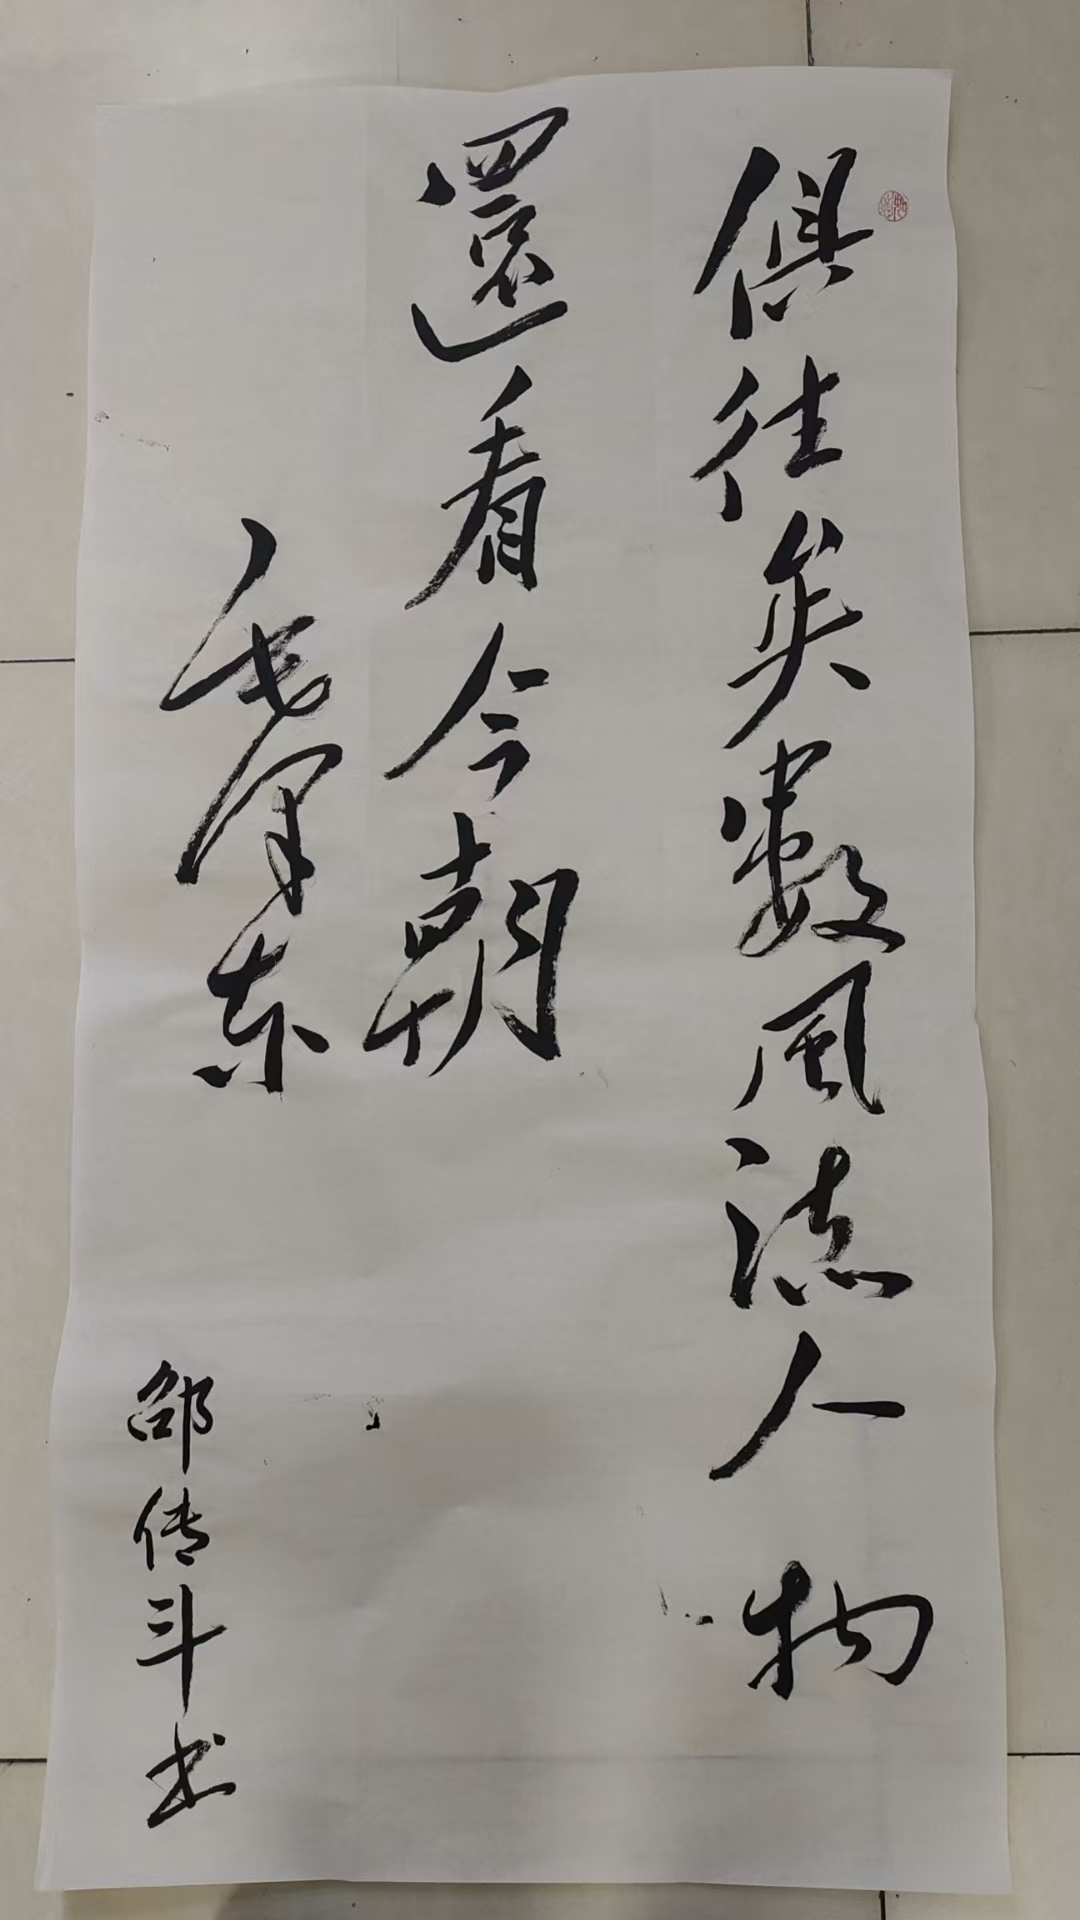 俱往矣数風流人物
還看今朝
毛泽东
邵传斗书